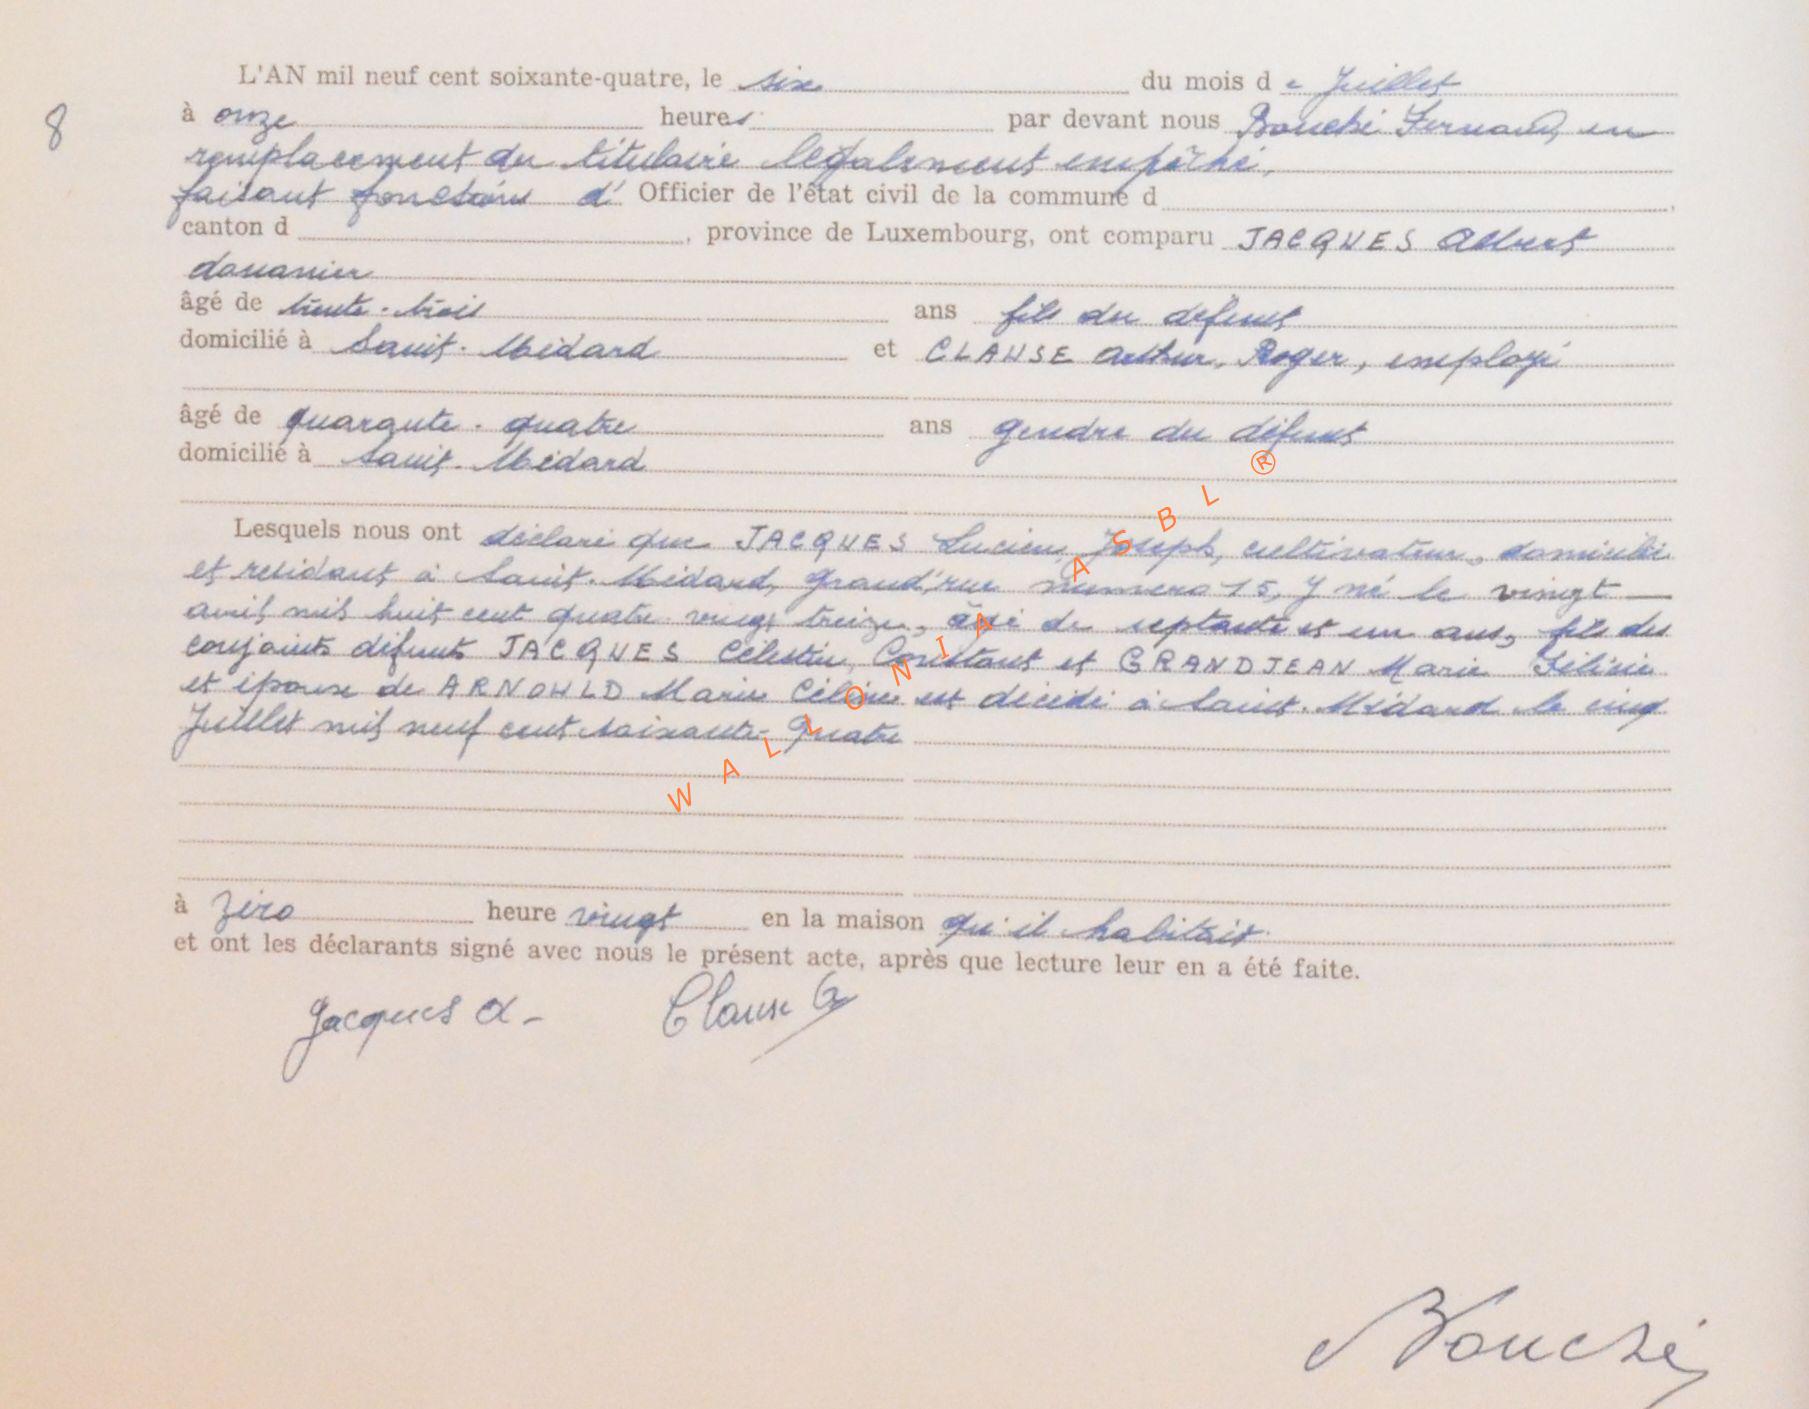 8
L'AN mil neuf cent soixante-quatre, le six du mois de Juillet
à onze heures par devant nous Bouché Fernand, en
remplacement du titulaire légalement empêché,
faisant fonctions d' Officier de l'état civil de la commune d ,
canton d , province de Luxembourg, ont comparu JACQUES Albert
douanier
âgé de trente-trois ans fils du défunt
domicilié à Saint-Médard et CLAUSE Arthur, Roger, employé
âgé de quarante-quatre ans gendre du défunt
domicilié à Saint-Médard
Lesquels nous ont déclaré que JACQUES Lucien, Joseph, cultivateur, domicilié
et résidant à Saint-Médard, Grand'rue numéro 15, y né le vingt
avril mil huit cent quatre vingt treize, âgé de septante et un ans, fils des
conjoints défunts JACQUES Célestin, Constant et GRANDJEAN Marie
et époux de ARNOULD Marie Céline est décédé à Saint-Médard le cinq
Juillet mil neuf cent soixante-quatre
à zéro heure vingt en la maison qu'il habitait
et ont les déclarants signé avec nous le présent acte, après que lecture leur en a été faite.
Jacques A- Clause
Bouché
WALLONIA ASBL ®